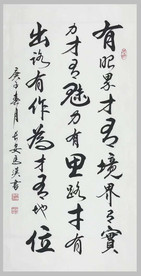 有眼界才有境界有實
力才有魅力有思路才有
出路有作為才有地位
庚子春月長安